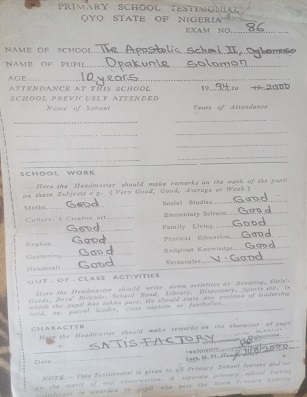 PRIMARY SCHOOL TESTIMONIAL
OYO STATE OF NIGERIA
EXAM NO. 86
NAME OF SCHOOL The Apostolic School II, Ogbomoso
NAME OF PUPIL Opakunle Solomon
AGE 10 years
ATTENDANCE AT THIS SCHOOL 19 94 to 2000
SCHOOL PREVIOUSLY ATTENDED
Name of School Years of Attendance
SCHOOL WORK
Here the Headmaster should make remarks on the work of the pupil
on these Subjects e.g. (Very Good, Good, Average or Weak)
Maths. Good Social Studies Good
Cultural & Creative art Elementary Science Good
Good Family Living Good
English Good Physical Education Good
Gardening Good Religious Knowledge Good
Handcraft Good Vernacular V. Good
OUT-OF-CLASS ACTIVITIES
Here the Headmaster should write down activities as Evening, Girls'
Guide, Boys' Brigade, School Band, Library, Dispensary, Sports etc. in
the pupil has taken part. He should state any position of leadership
held, eg. patrol leader, class captain or
CHARACTER
Here the Headmaster should make remarks on the character of pupil
SATISFACTORY
Date
NOTE:- This Testimonial is given to all Primary School leavers and
the merit of any examination. A separate primary school leaving